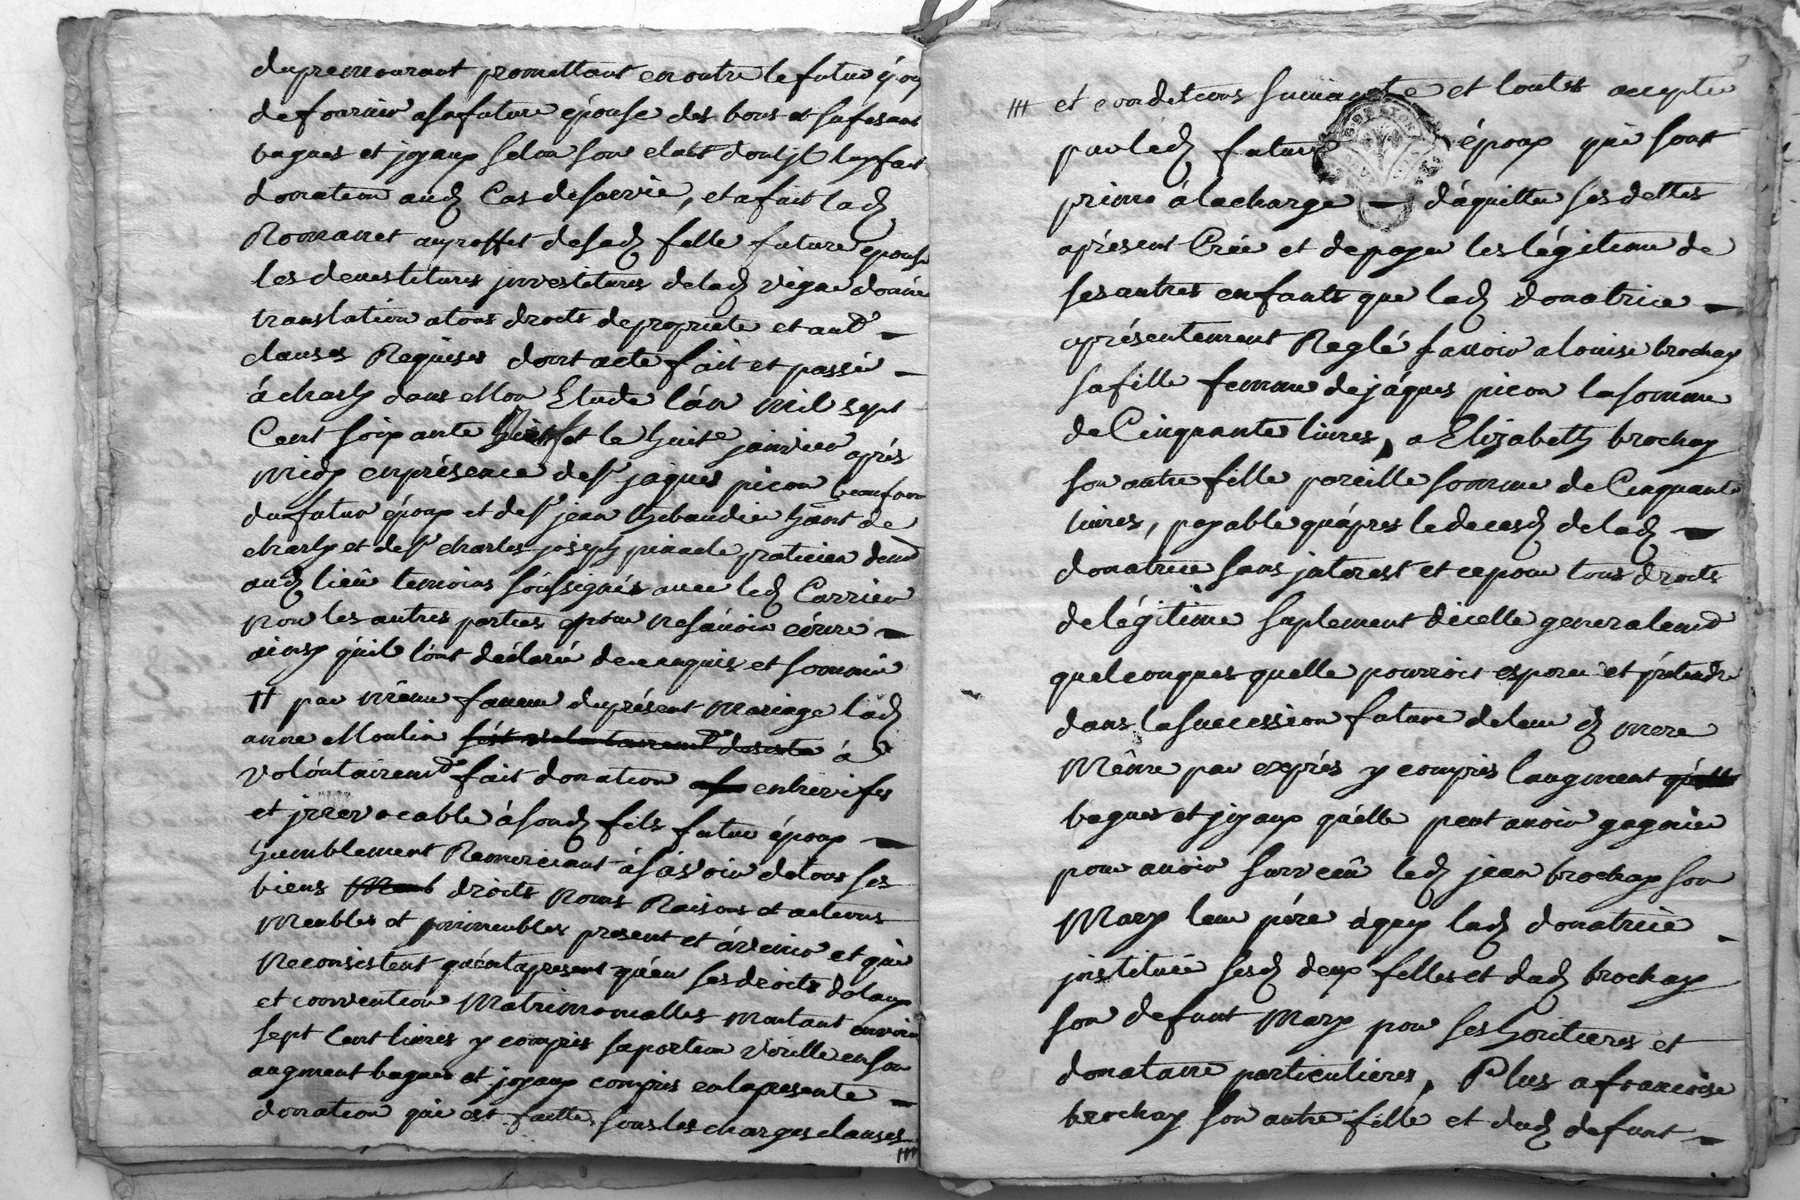 du premourant promettant en outre le futur époux
de fournir a sa future épouse des bons et sufisant
bagues et joyaux selon son etatt dont jl luy fait
donation aud. Cas de survie, et a fait lad.
Romanet au proffit de sad. fille future epouse
les devestitures jnvestitures de lad. vigne donnée
translation a tous droits de propriete et aut.
clauses Requises dont acte fait et passé
á charly dans Mon Etude l'án mil sept
Cent soixante et le huite janvier aprés
midy en présence de Sr. jaques picon beaufrere
du futur époux et de Sr. jean thibaudier hant. de
charly et de Sr. charles joseph pinacle praticien demt.
aud. lieü temoins soussignés avec led. Carrier
non les autres parties pour ne sávoir écrire
ainsy qu'il l'ont déclaré de ce enquis et sommé
++ par même faveur du présent mariage lad.
anne Moulin á
volóntairemt. fait donation entrevifs
et jrrevocable á sond. fils futur époux
humblement Remerciant á sávoir de tous ses
biens droits Noms Raisons et actions
Meubles et jmmeubles present et ávenir et qui
ne consistent quánt apresent qu'en ses droits dotaux
et convention Matrimonialles montant environ
sept Cent livres y compris sa portion virille en son
augment bagues et joyaux compris en la presente
donation qui est faitte sous les charges clauses
+++ et conditions suivante et toutes accepté
par led. futur époux qui sont
primo á la charge d'áquitter ses dettes
aprésent Créé et de payer les légitime de
ses autres enfants que lad. donatrice
aprésentement Reglé savoir a louise brochay
sa fille femme de jáques picon la somme
de Cinquante livres, a Elizabeth brochay
son autre fille pareille somme de Cinquante
livres, payable quápres le decesd. de lad.
donatrice sans jnterest et ce pour tous droits
de légitime suplement d'icelle generalemt.
quelconques quelle pourroit esperer et prétendre
dans la succession future de leur d. mere
Même par exprés y compris l'augment
bagues et joyaux quélle peut avoir gagnée
pour avoir survecü led. jean brochay son
Mary leur pére á quoy lad. donatrice
jnstitué sesd. deux filles et dud. brochay
son defunt Mary pour ses héritieres et
donataire particulieres, Plus a francoise
brochay son autre fille et dud. defunt